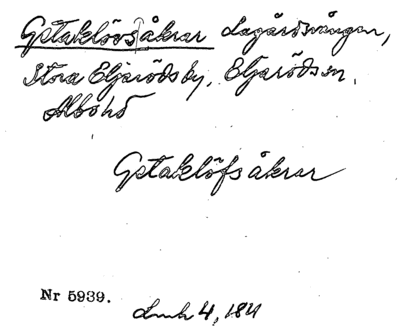 Götaklövsåkrar Lagårdsvången,
Stora Eljarödsby, Eljaröds sn,
Albo hd
Götaklöfs åkrar
Nr 5939.
4, 1811